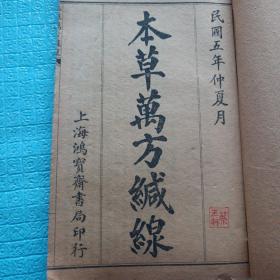 民國五年仲夏月
本草萬方緘線
上海鴻寶齋書局印行